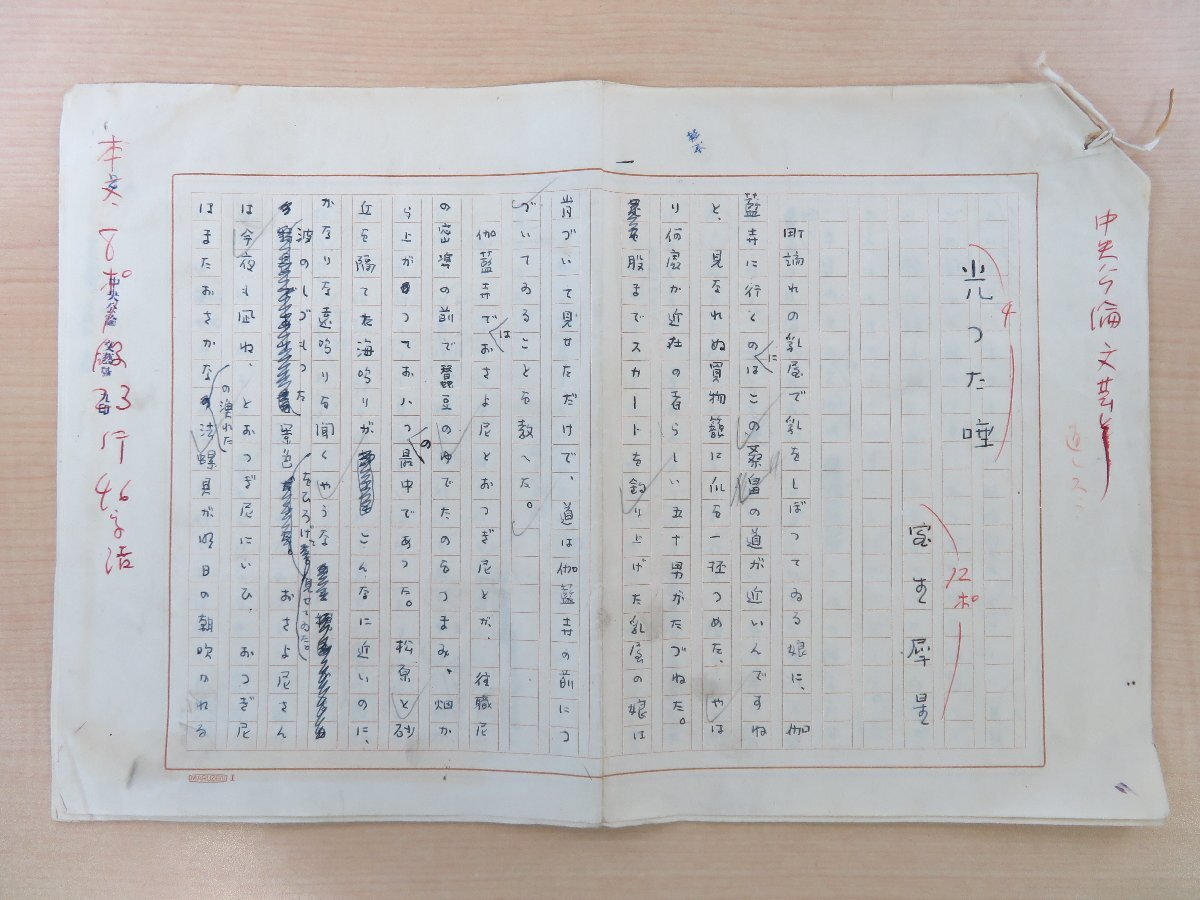 中央公論文芸
4
光つた唖
12ポ
室生犀星
町端れの乳屋で乳をしぼつてゐる娘に、伽
藍寺に行くのにはこの桑畠の道が近いんですね
と、見なれぬ買物籠に瓜を一杯つめた、やは
り何處か近在の者らしい五十男がたづねた。
股までスカートを釣り上げた乳屋の娘は
肯づいて見せただけで、道は伽藍寺の前につ
づいてゐることを教へた。
伽藍寺ではおさよ尼とおつぎ尼とが、住職尼
の前で蠶豆のゆでたのをつまみ、畑か
ら上がつておハつの最中であつた。松原と砂
丘を隔てた海鳴りがこんなに近いのに、
かなりな遠鳴りを聞くやうな
波のしづもつた景色をひろげて見せてゐた。おさよ尼さん
は今夜も凪ね、とおつぎ尼にいひ、おつぎ尼
はまたおさかなの漁れた法螺貝が明日の朝吹かれる
本文8ポ
23行46字詰
MARUZEN 1